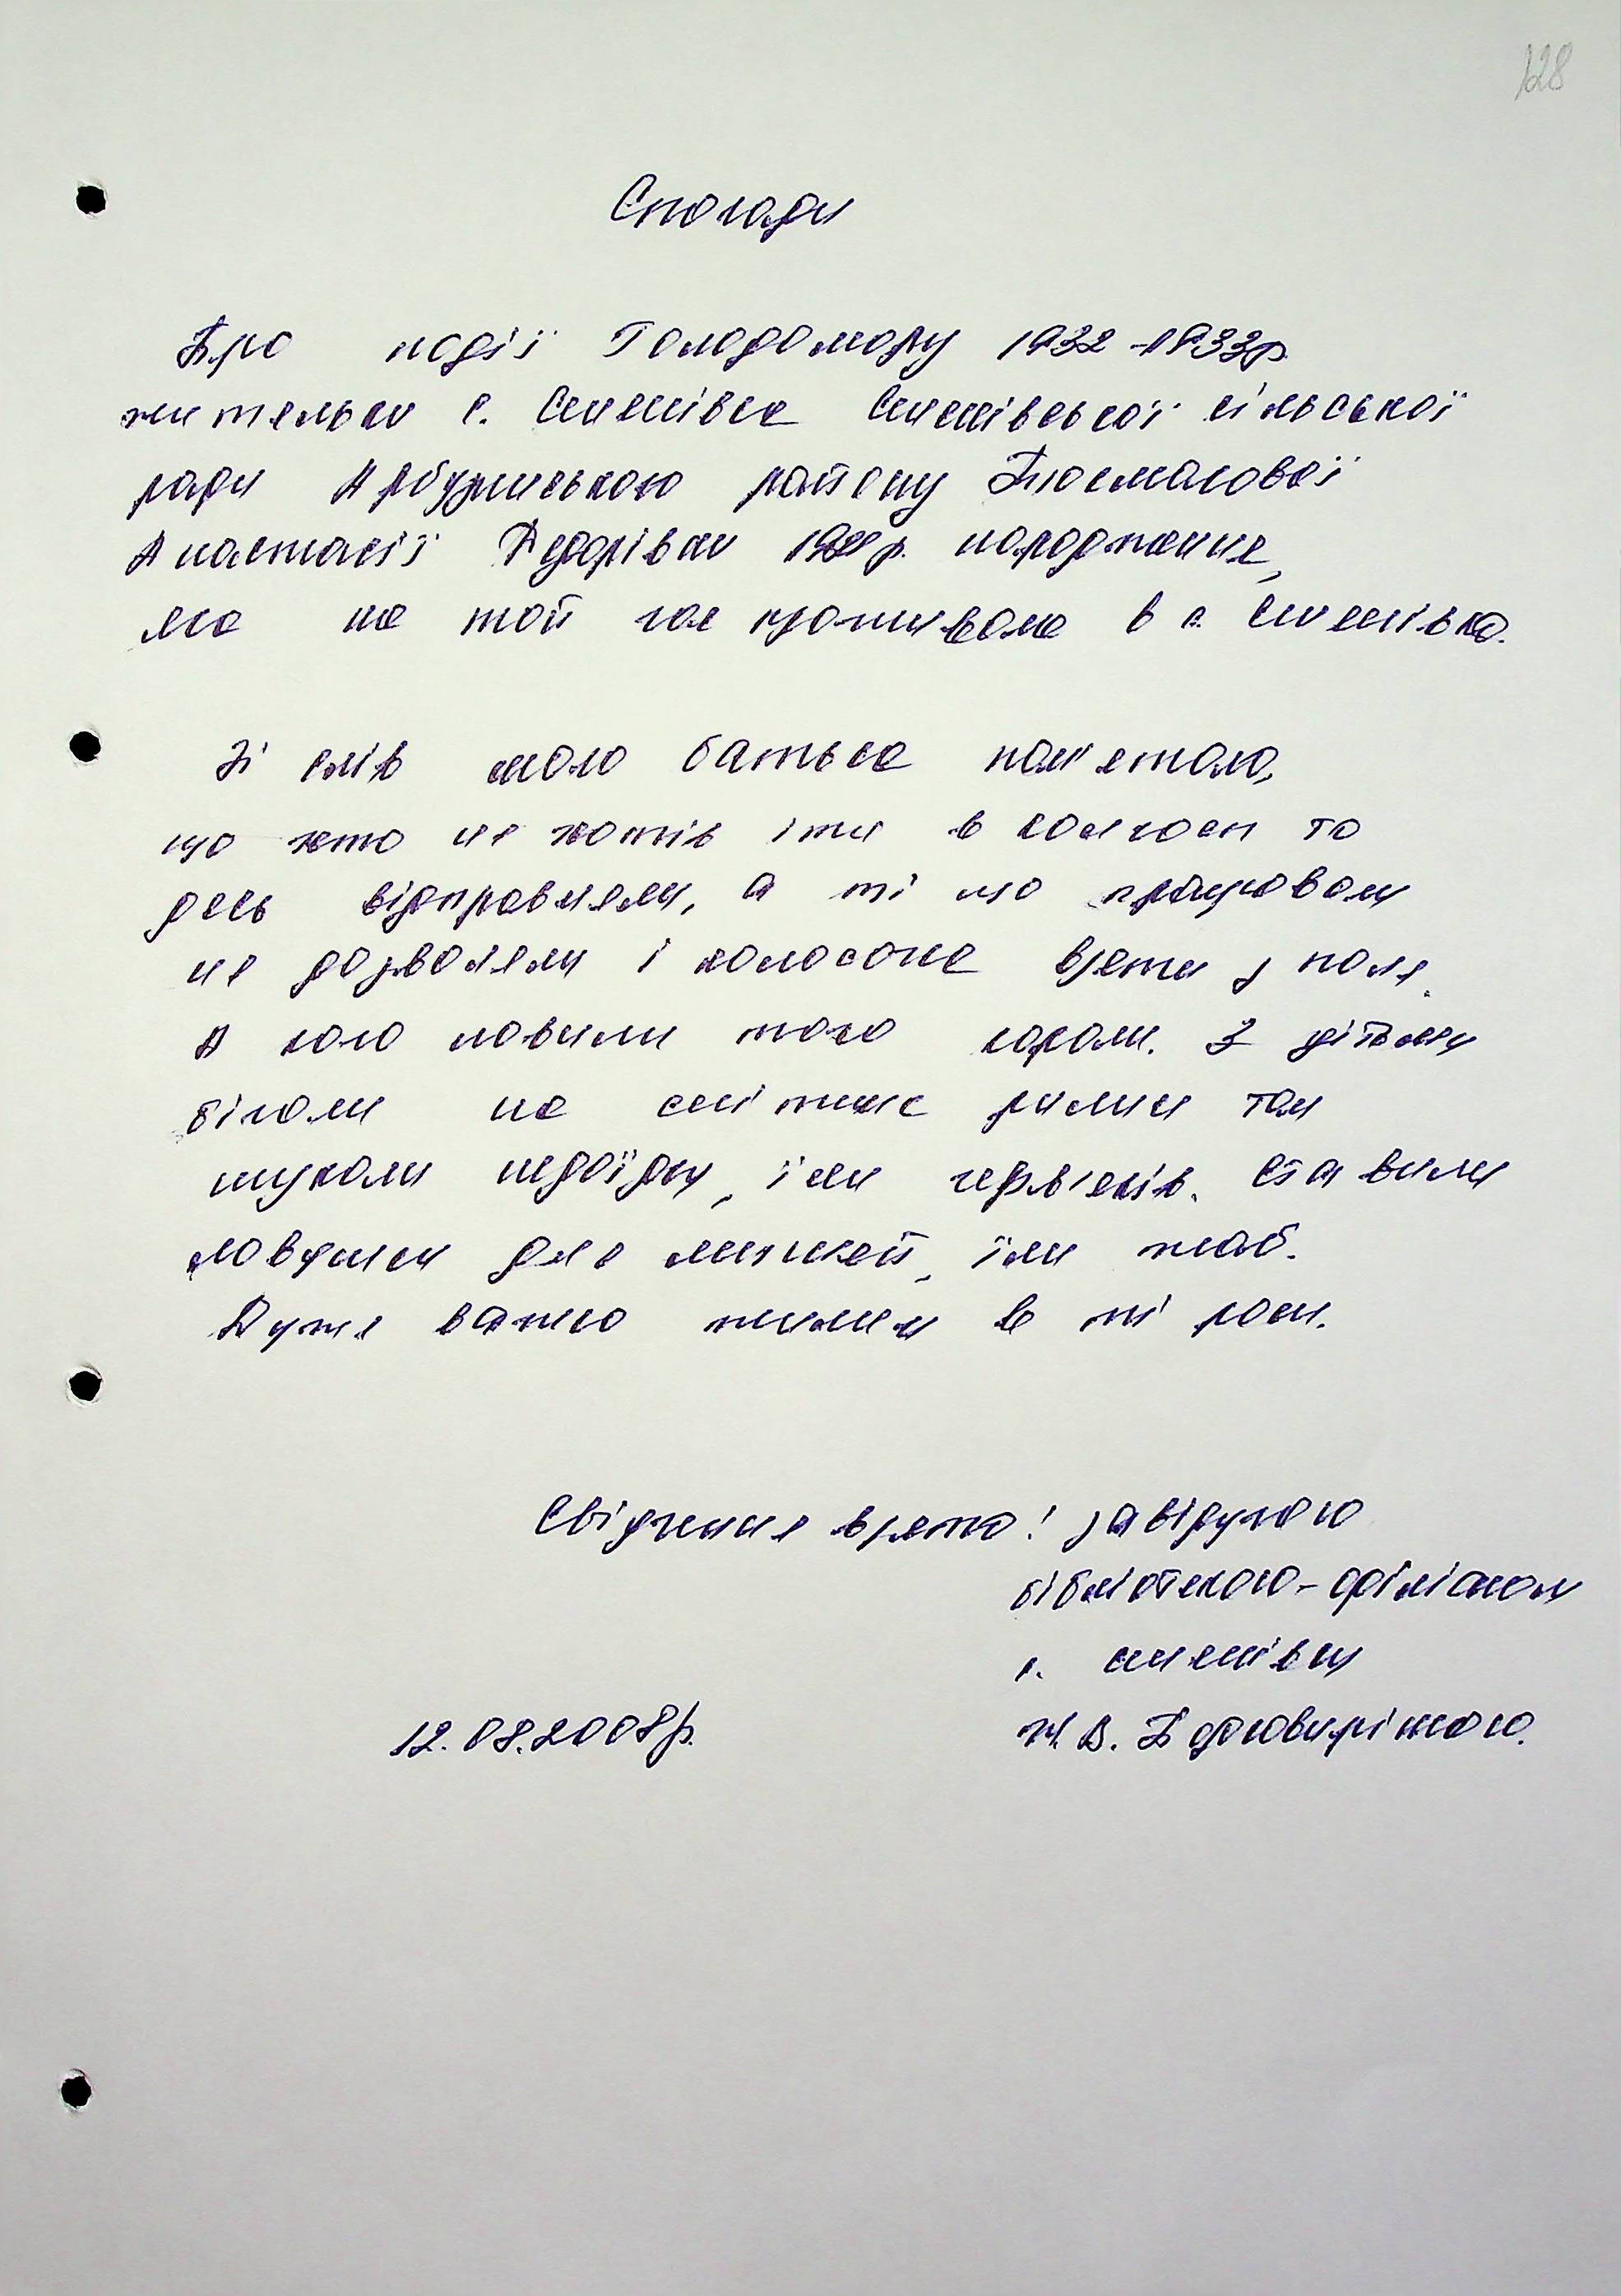 128
Спогади
Про події Голодомору 1932-1933р.
жительки с. Семенівка Семенівської сільської
ради Арбузинського району
Анастасії Федорівни народження,
яка на той час проживала в с. Семенівка.
Зі слів мого батька пам'ятаю,
що хто не хотів іти в колгосп то
десь відправляли, а ті що працювали
не дозволяли і колоска взяти з поля.
А кого ловили того карали. З дітьми
бігали на смітник рились там
шукали недоїдки, їли черв'яків. Ставили
ловушки для мишей, їли жаб.
Дуже важко жили в ті роки.
Свідчення взято: завідуючою
бібліотекою-філіалом
с. Семенівки
12.08.2008р.
Ж.В.